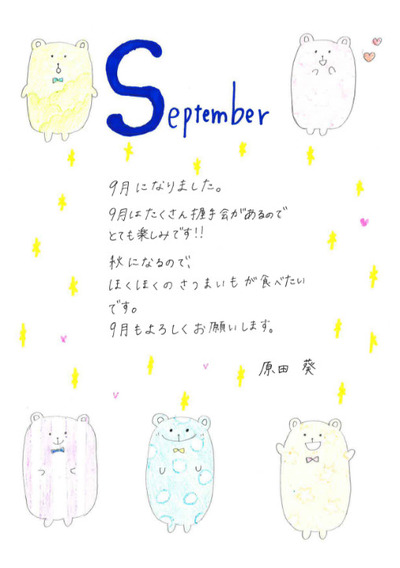 September
9月になりました。
9月はたくさん握手会があるので
とても楽しみです!!
秋になるので、
ほくほくのさつまいもが食べたい
です。
9月もよろしくお願いします。
原田 葵